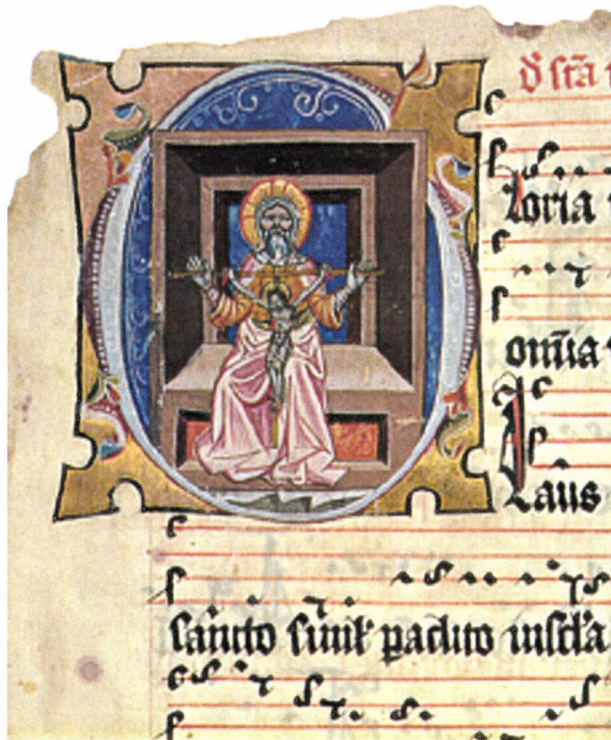 d̄ scā
loria
om̄ia
Laus
sancto siml̄ paclito inscl̄a